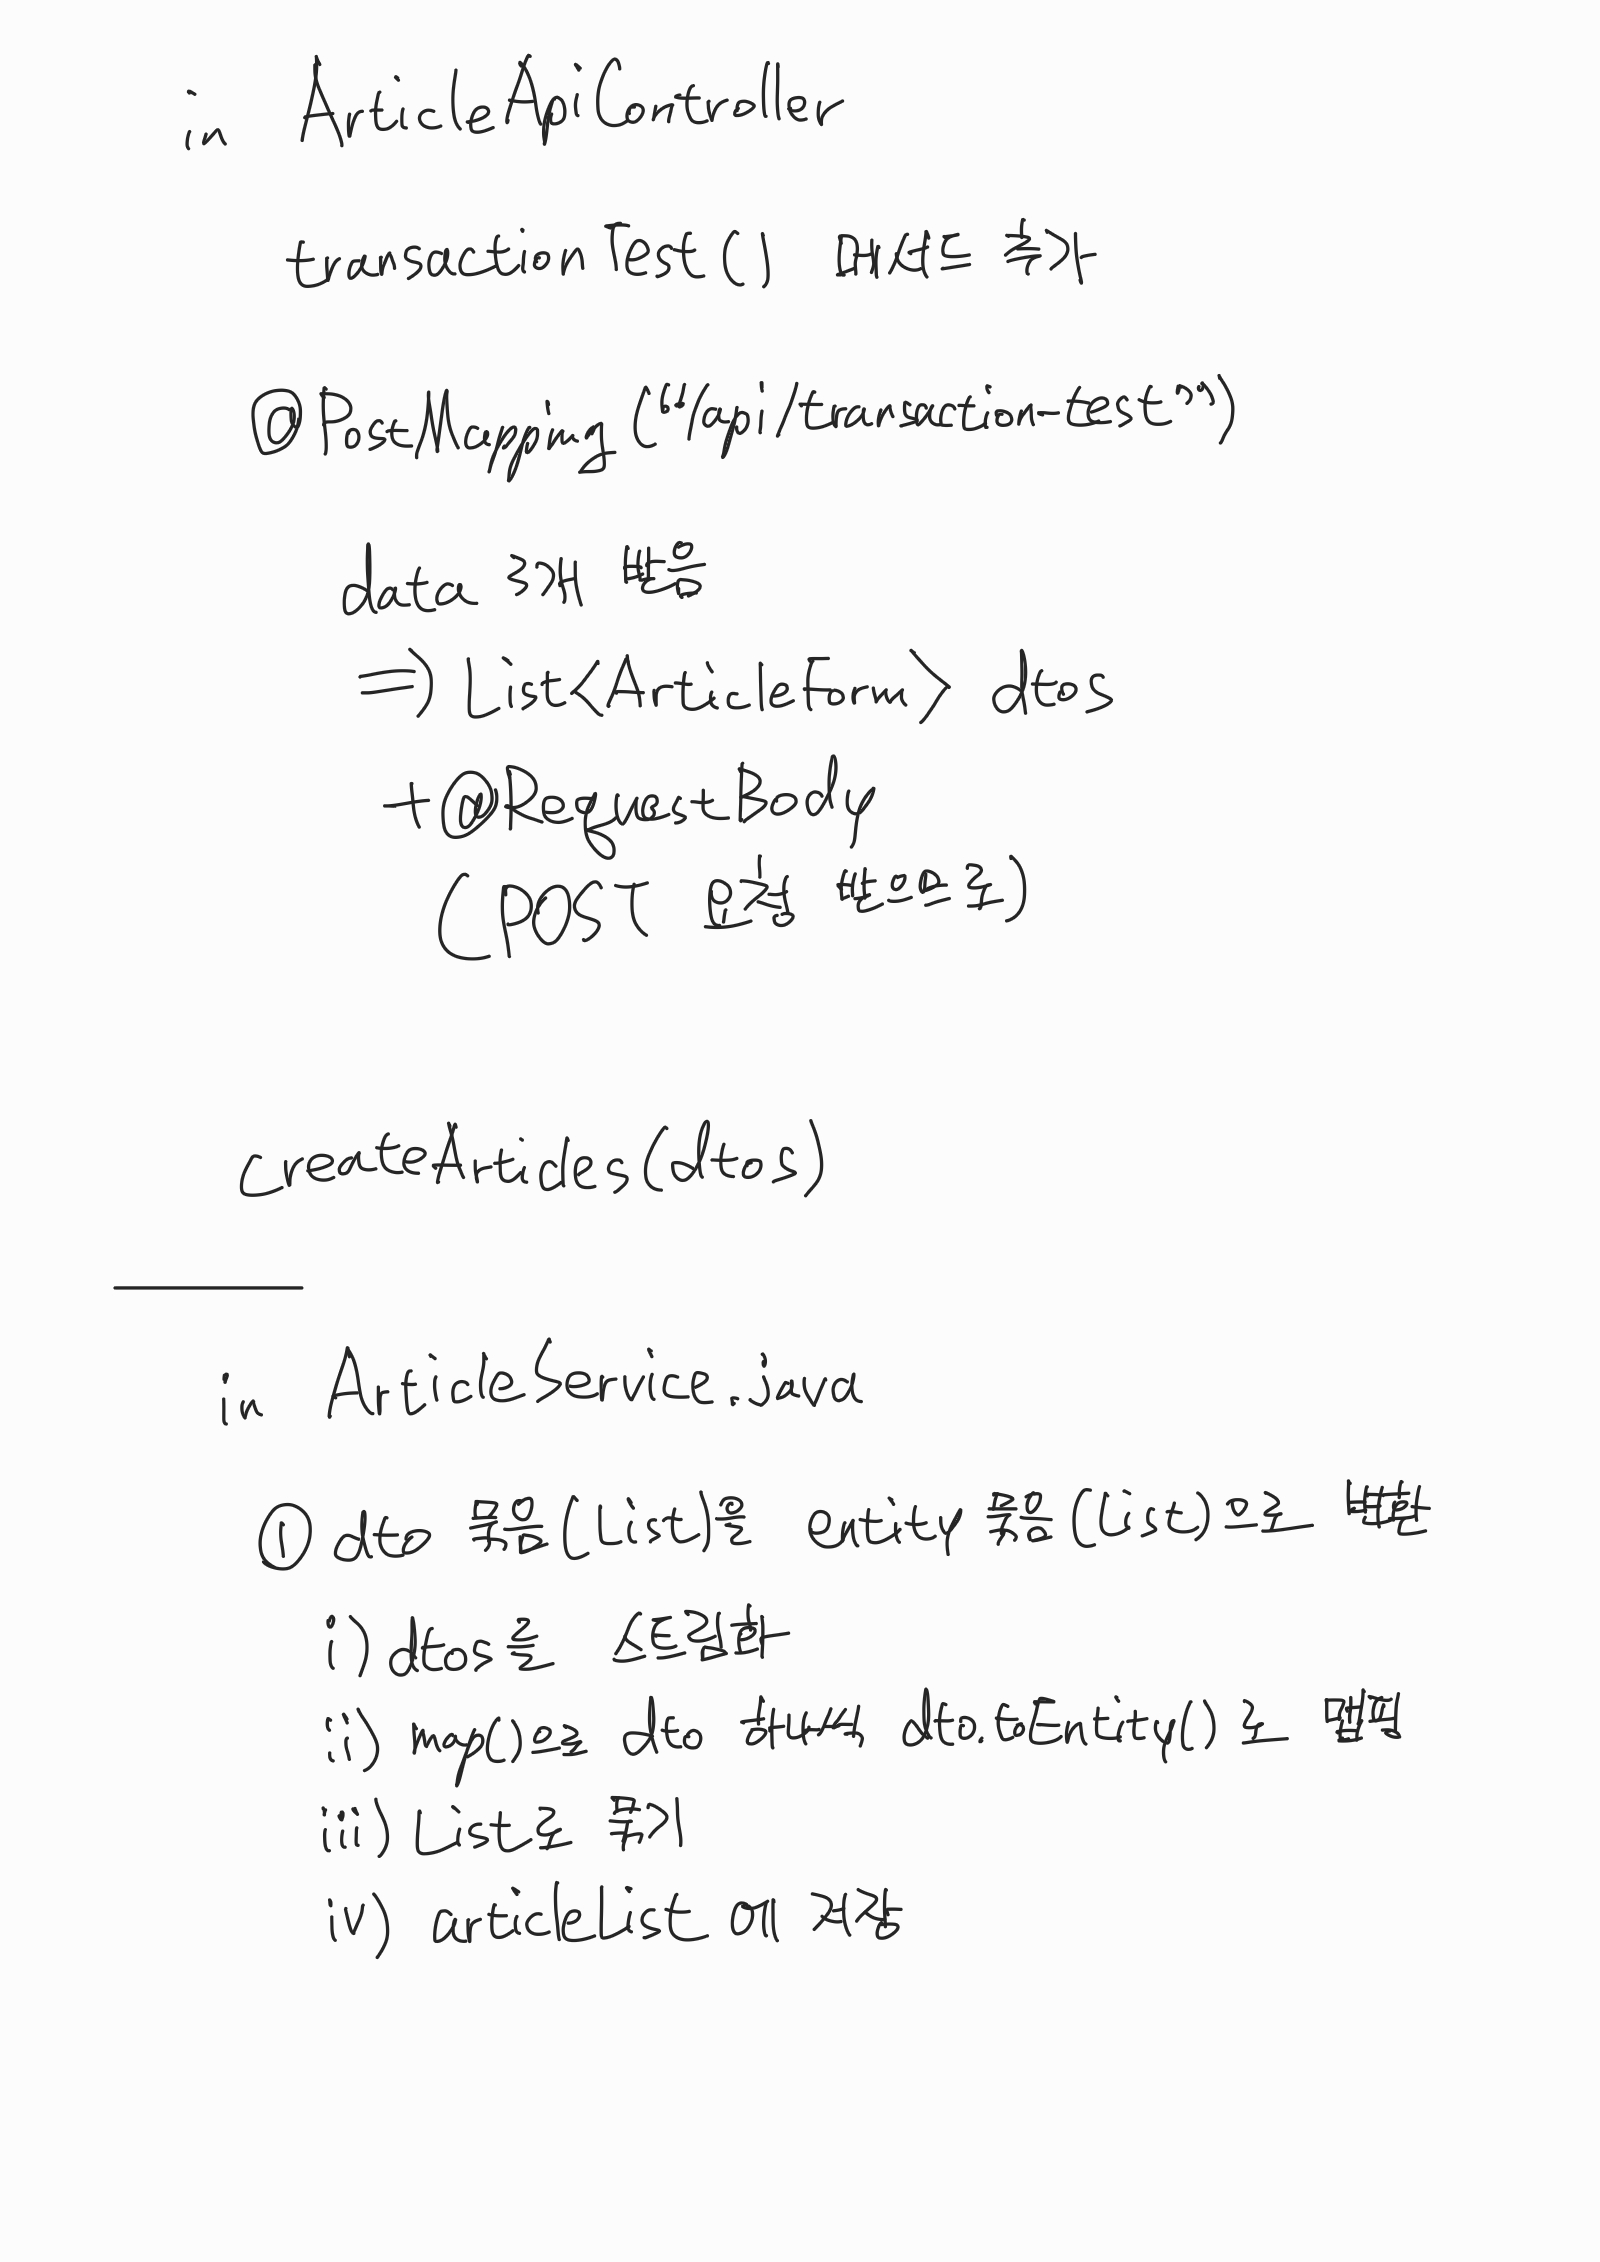 in ArticleApiController
transactionTest() 메서드 추가
@PostMapping (“/api/transaction-test”)
data 3개 받음
=> List<ArticleForm> dtos
+ @RequestBody
(POST 요청 받으므로)
createArticles(dtos)
in ArticleService.java
① dto 묶음(List)을 entity 묶음(List)으로 변환
i) dtos를 스트림화
ii) map()으로 dto 하나씩 dto.toEntity()로 맵핑
iii) List로 묶기
iv) articleList에 저장